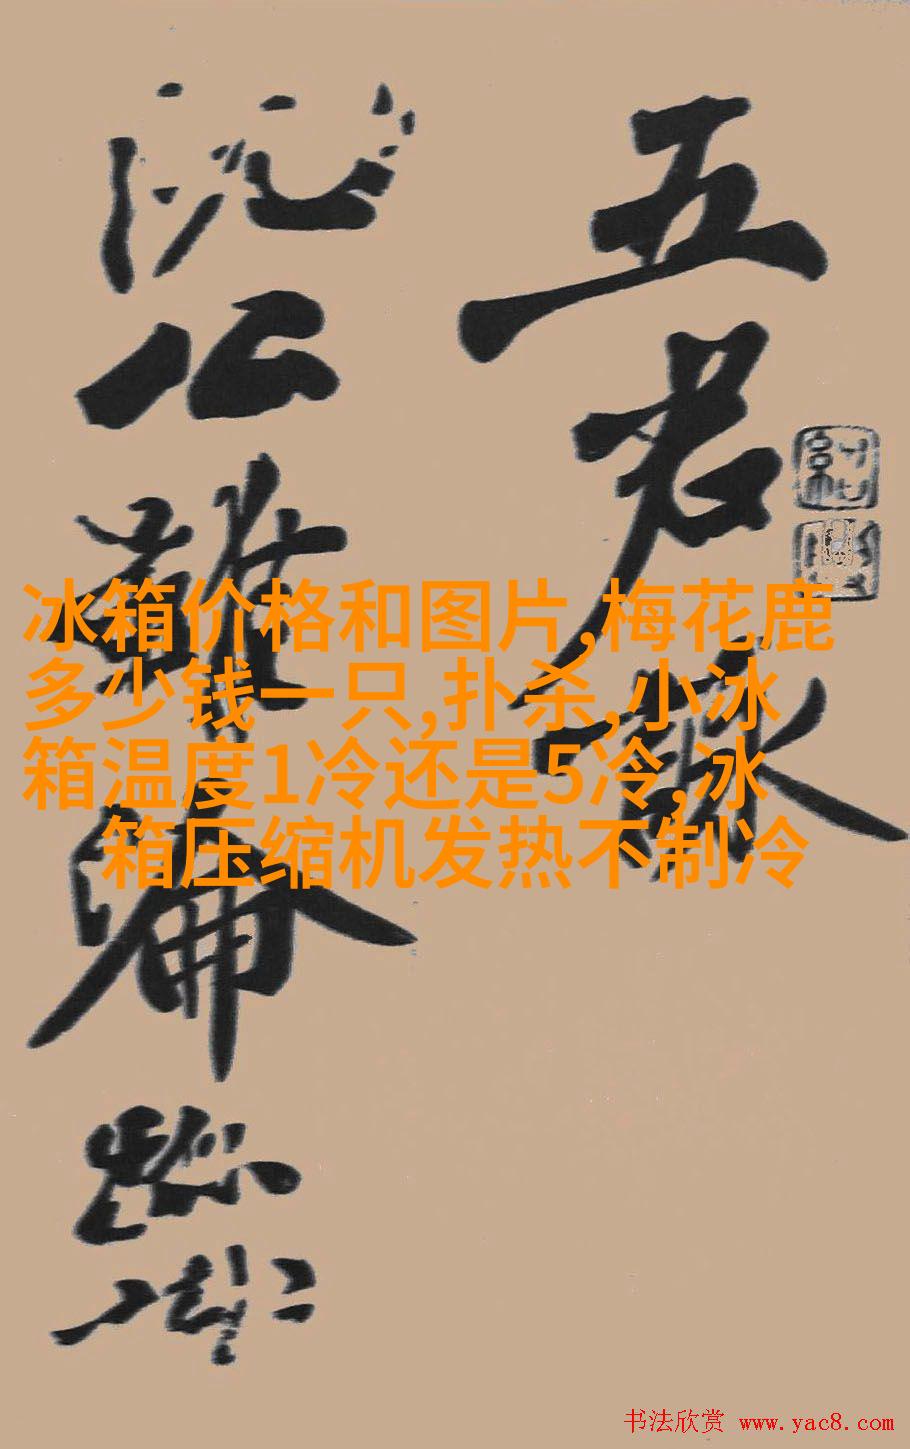 五君詠
阮公雖淪跡
冰箱价格和图片,梅花鹿
多少钱一只,扑杀,小冰
箱温度1冷还是5冷,冰
箱压缩机发热不制冷
书法欣赏 www.yac8.com